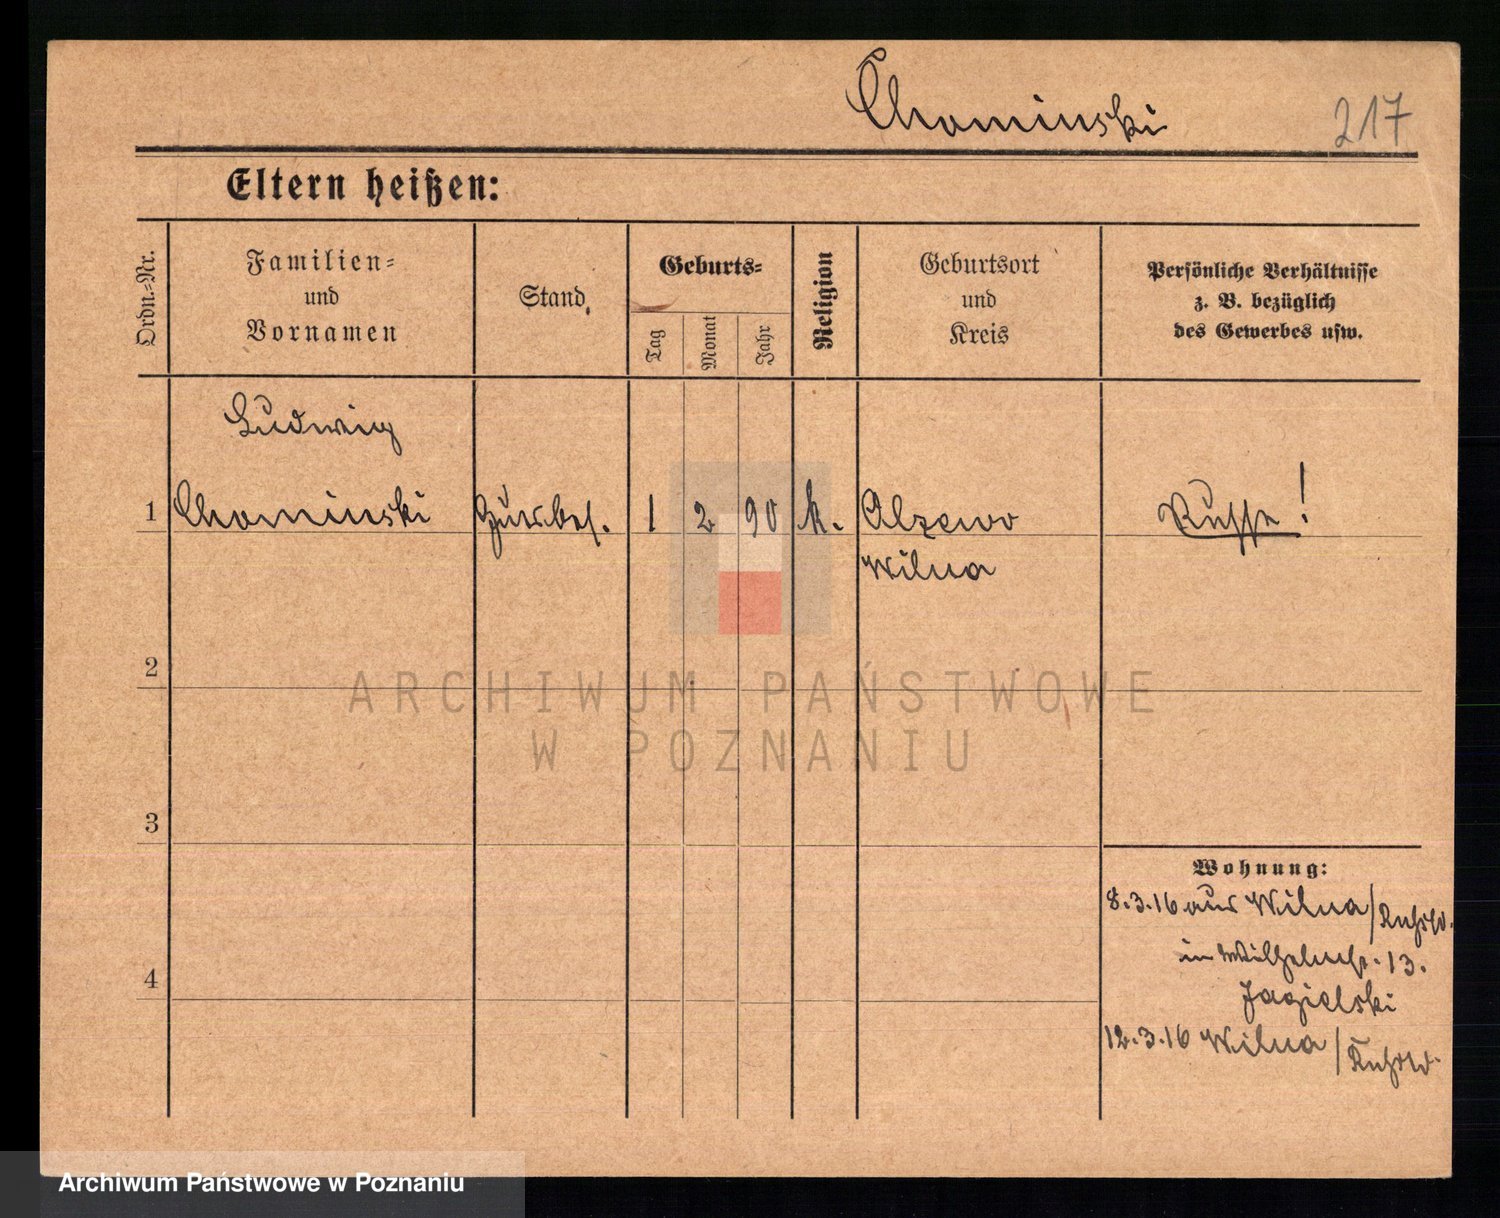 Chominski
217
Eltern heißen:
Ordn.-Nr.
Familien-
und
Vornamen
Stand
Geburts-
Tag
Monat
Jahr
Religion
Geburtsort
und
Kreis
Persönliche Verhältnisse
z. B. bezüglich
des Gewerbes usw.
Ludwig
1 Chominski Gutsbes. 1 2 90 k. Olzewo Russe!
Wilna
2
ARCHIWUM PAŃSTWOWE
W POZNANIU
3
Wohnung:
8.3.16 aus Wilna/Rußld.
in Wilhelmstr. 13.
4
Jagielski
12.3.16 Wilna/Rußld.
Archiwum Państwowe w Poznaniu